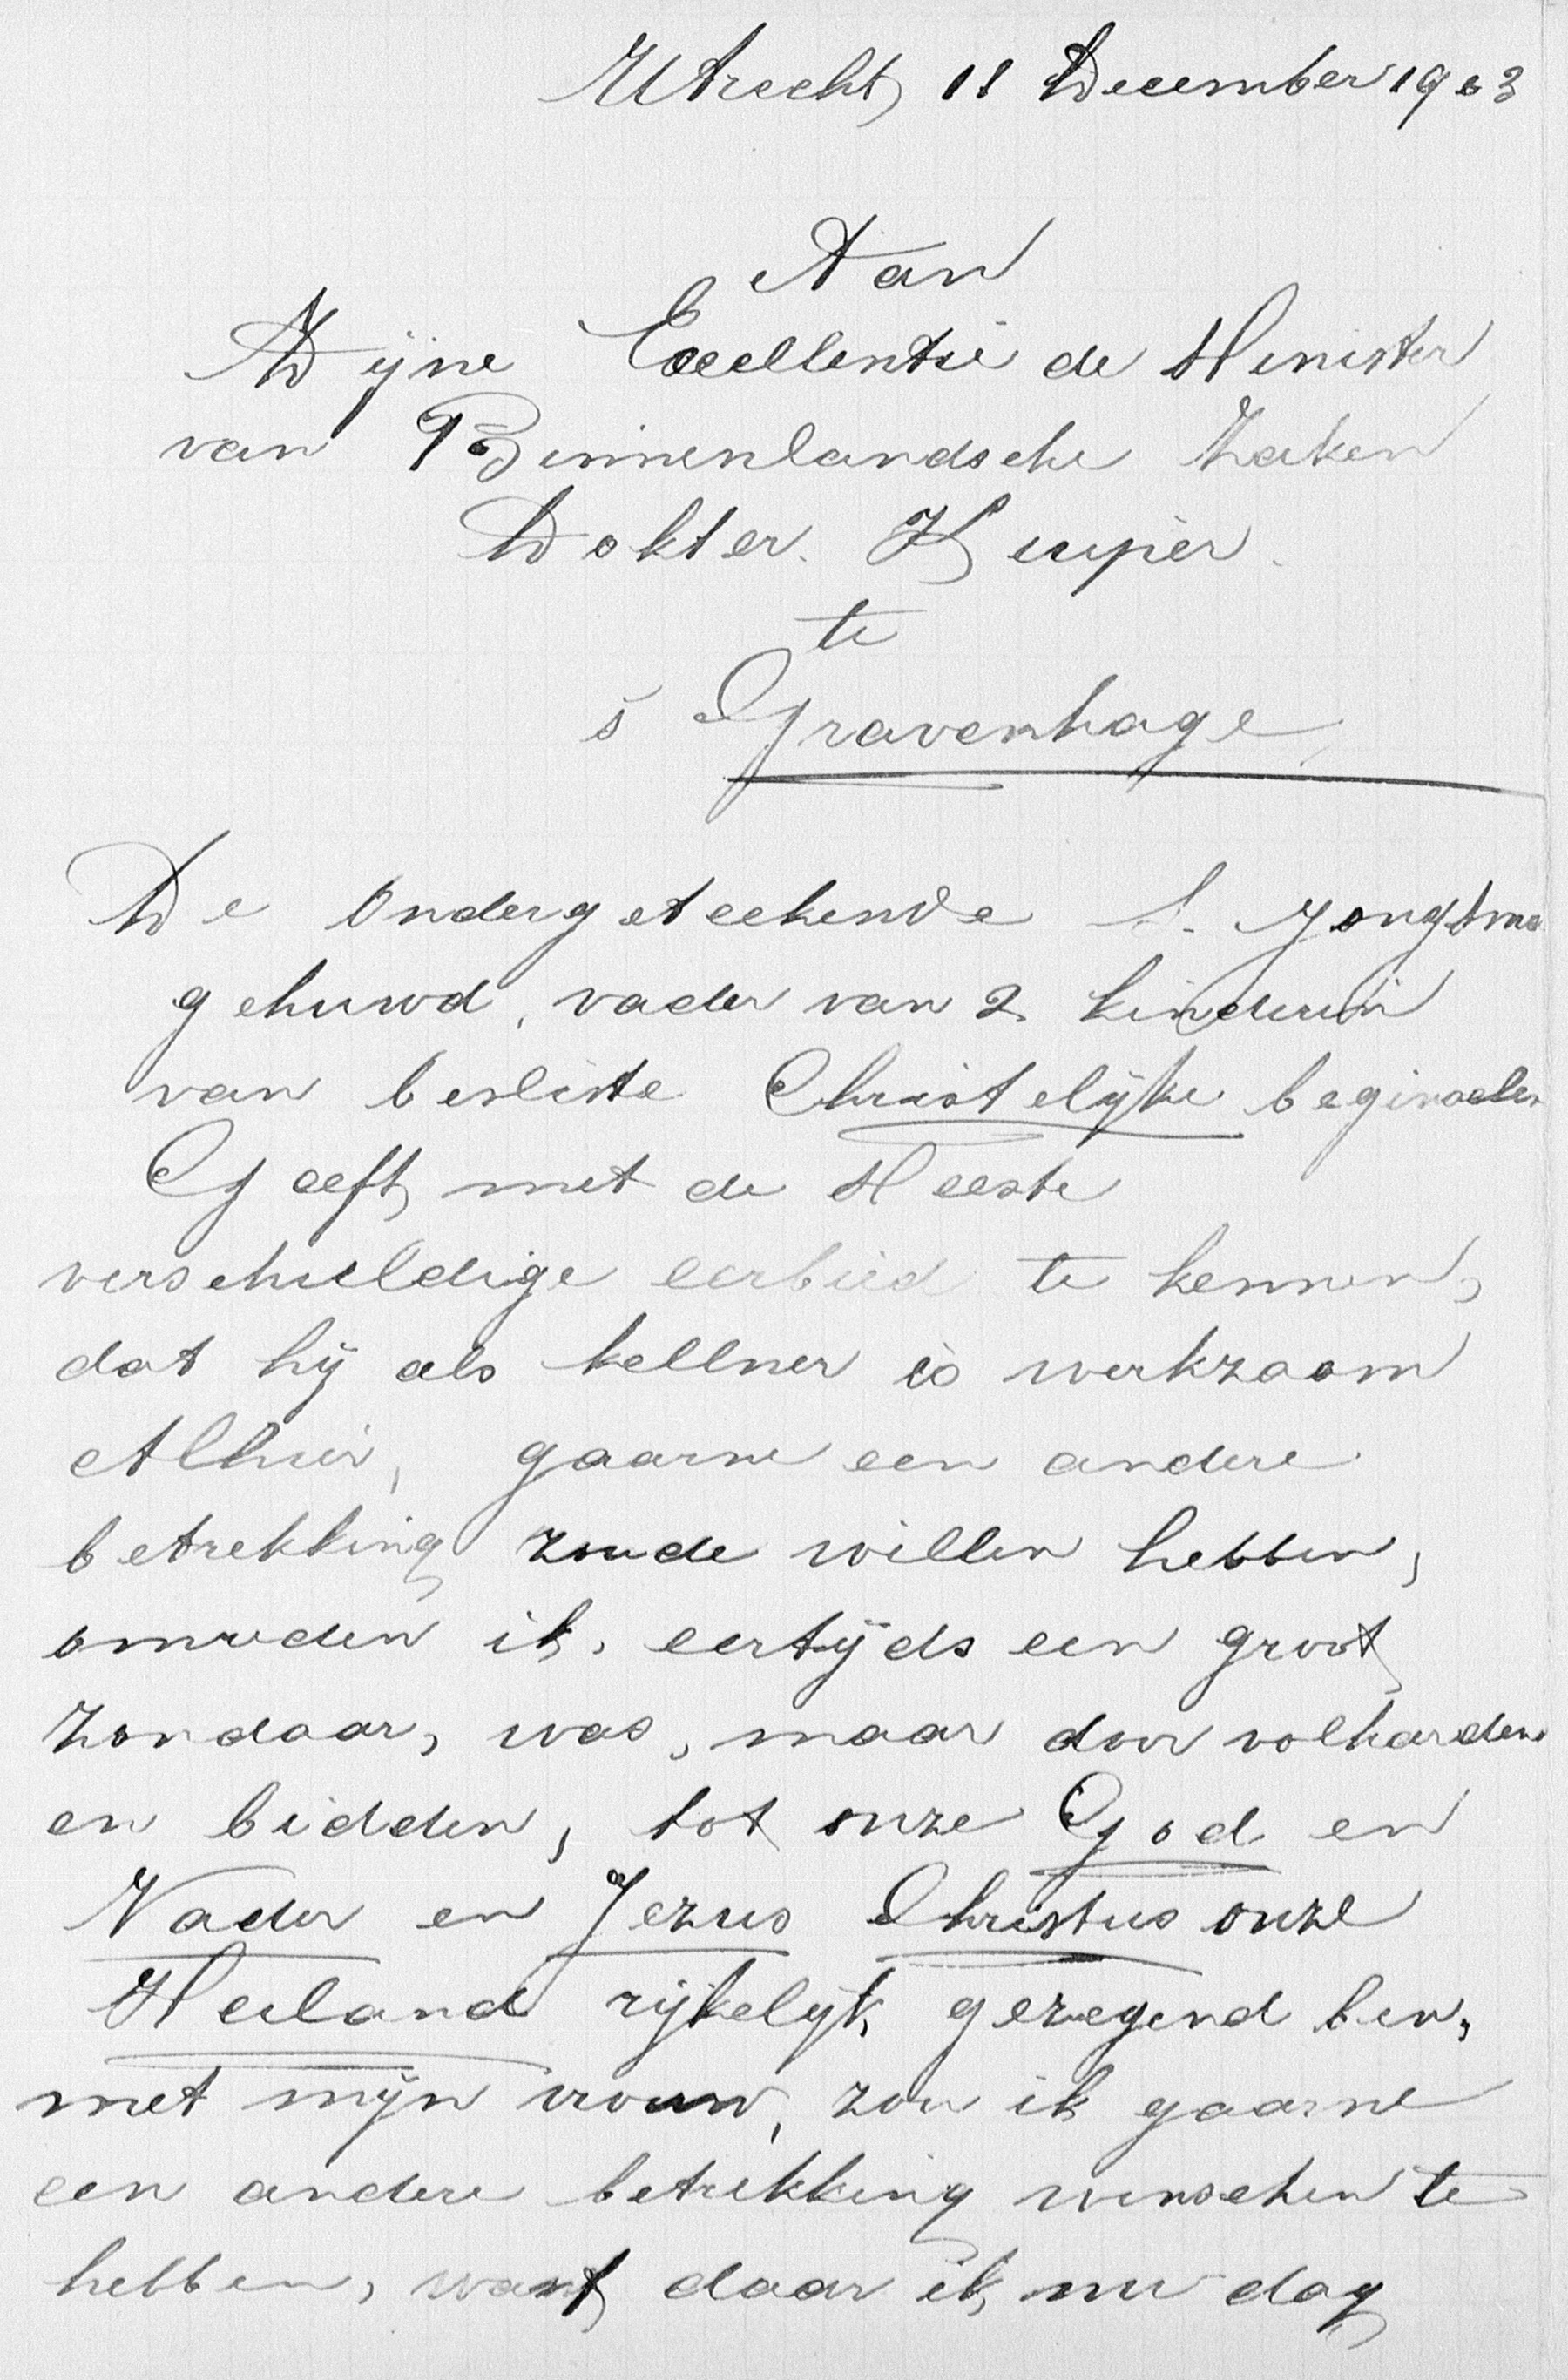 Utrecht 11 December 1903
Aan
Zijne Excellentie de Minister
van Binnenlandsche Zaken
Dokter. Kuiper.
te
s Gravenhage,
De Ondergeteekende S. Jongsma
gehuwd, vader van 2 kinderen
van besliste Christelijke beginselen
Geeft met de Meeste
verschuldige eerbied te kennen,
dat hij als kellner is werkzaam
Alhier, gaarne een andere
betrekking zoude willen hebben,
omreden ik, eertijds een groot
Zondaar, was, maar door volharden
en bidden, tot onze God en
Vader en Jezus Christus onze
Heiland rijkelijk gezegend ben,
met mijn vrouw, zou ik gaarne
een andere betrekking wenschen te
hebben, want daar ik nu dag